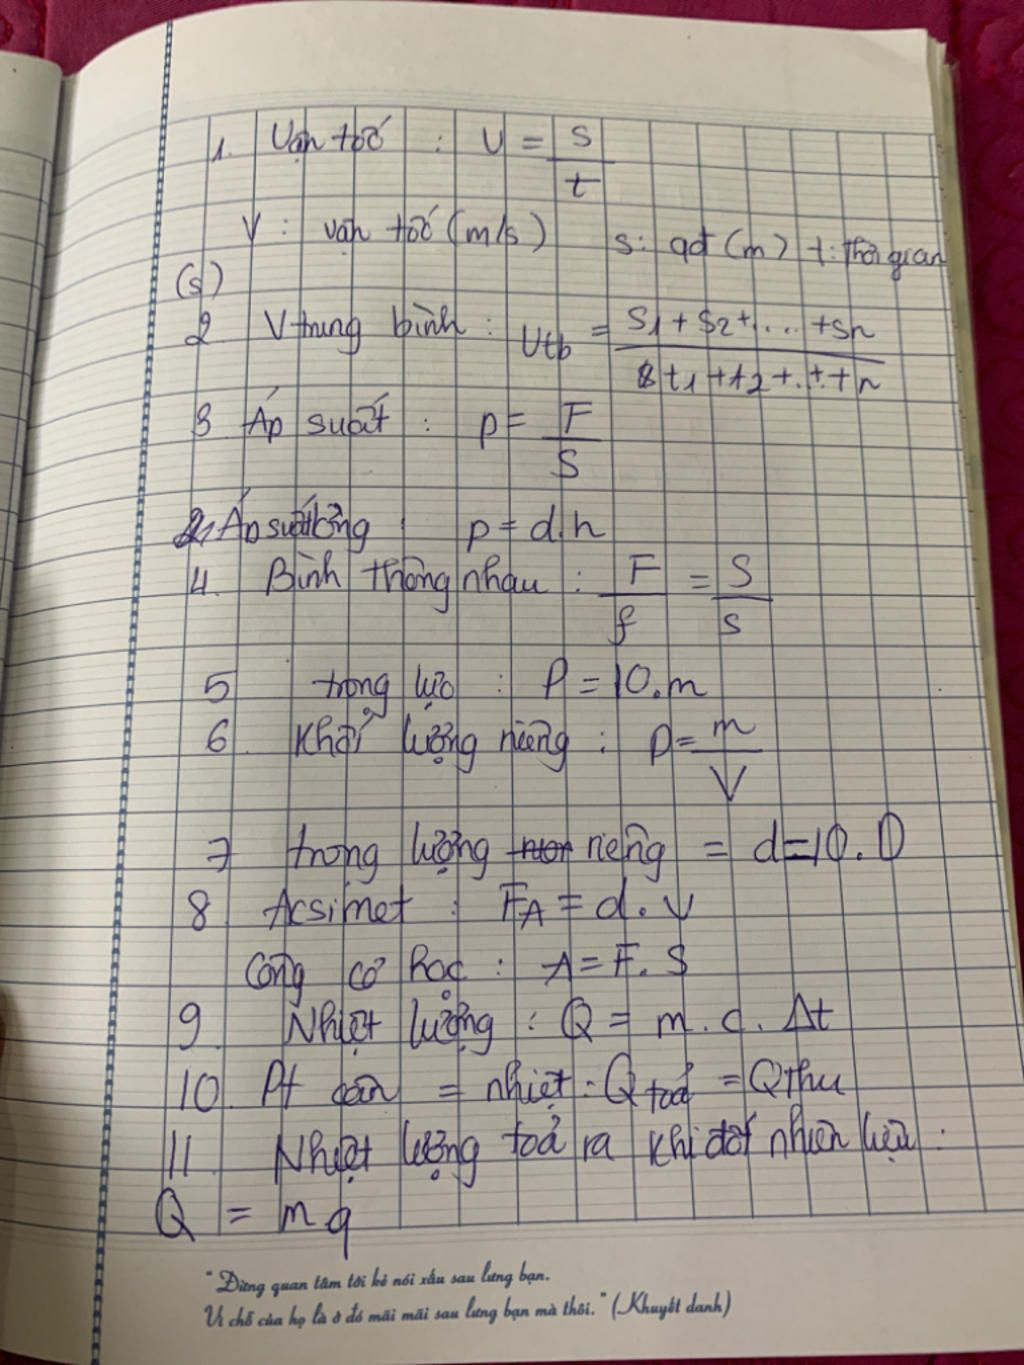 1. Vận tốc : v = s/t
v : vận tốc (m/s) s : qđ (m) t : thời gian
(s)
2 V trung bình : vtb = s1 + s2 + ... + sn / t1 + t2 + ... + tn
3 Áp suất : p = F/S
Áp suất lỏng : p = d.h
4. Bình thông nhau : F/f = S/s
5 trọng lực : P = 10.m
6 Khối lượng riêng : D = m/V
7 trọng lượng riêng = d = 10.D
8 Acsimet : FA = d.V
Công cơ học : A = F.S
9. Nhiệt lượng : Q = m.c.Δt
10. Pt cân = nhiệt : Q toả = Q thu
11 Nhiệt lượng toả ra khi đốt nhiên liệu :
Q = mq
"Đừng quan tâm tới kẻ nói xấu sau lưng bạn.
Vì chỗ của họ là ở đó mãi mãi sau lưng bạn mà thôi." (Khuyết danh)